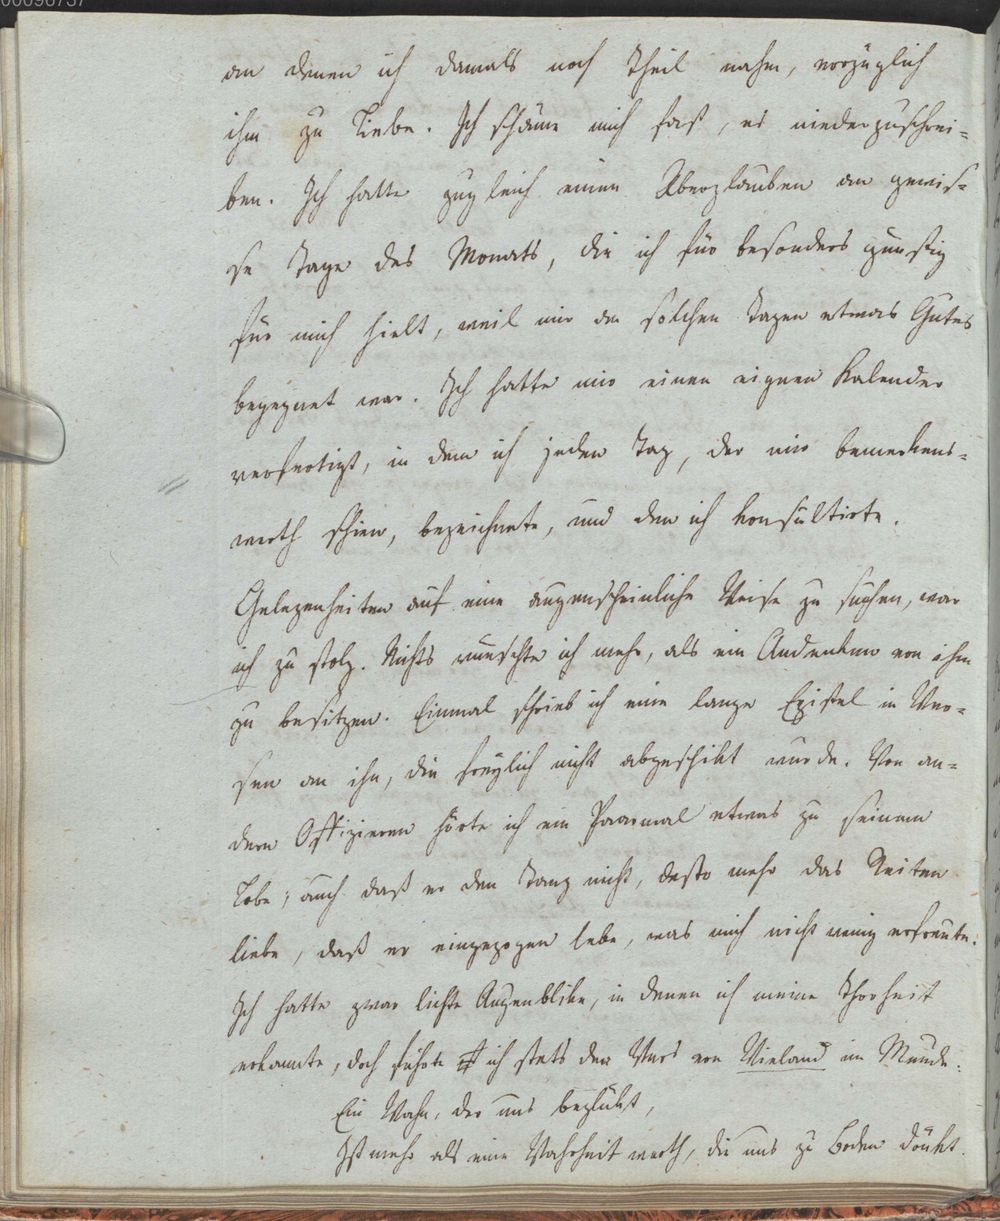 00096737
an denen ich damals noch Theil nahm, vorzüglich
ihm zu Liebe. Ich schäme mich fast, es niederzuschrei-
ben. Ich hatte zugleich einen Aberglauben an gewis-
se Tage des Monats, die ich für besonders günstig
für mich hielt, weil mir an solchen Tagen etwas Gutes
begegnet war. Ich hatte mir einen eignen Kalender
verfertigt, in dem ich jeden Tag, der mir bemerkens-
werth schien, bezeichnete, und den ich konsultirte.
Gelegenheiten auf eine augenscheinliche Weise zu suchen, war
ich zu stolz. Nichts wünschte ich mehr, als ein Andenken von ihm
zu besitzen. Einmal schrieb ich eine lange Epistel in Ver-
sen an ihn, die freylich nicht abgeschikt wurde. Von an-
dern Offizieren hörte ich ein Paarmal etwas zu seinem
Lobe; auch daß er den Tanz nicht, desto mehr das Reiten
liebe, daß er eingezogen lebe, was mich nicht wenig erfreute.
Ich hatte zwar lichte Augenblike, in denen ich meine Thorheit
erkannte, doch führte ich stets den Vers von Wieland im Munde.
Ein Wahn, der uns beglükt,
Ist mehr als eine Wahrheit werth, die uns zu Boden drükt.